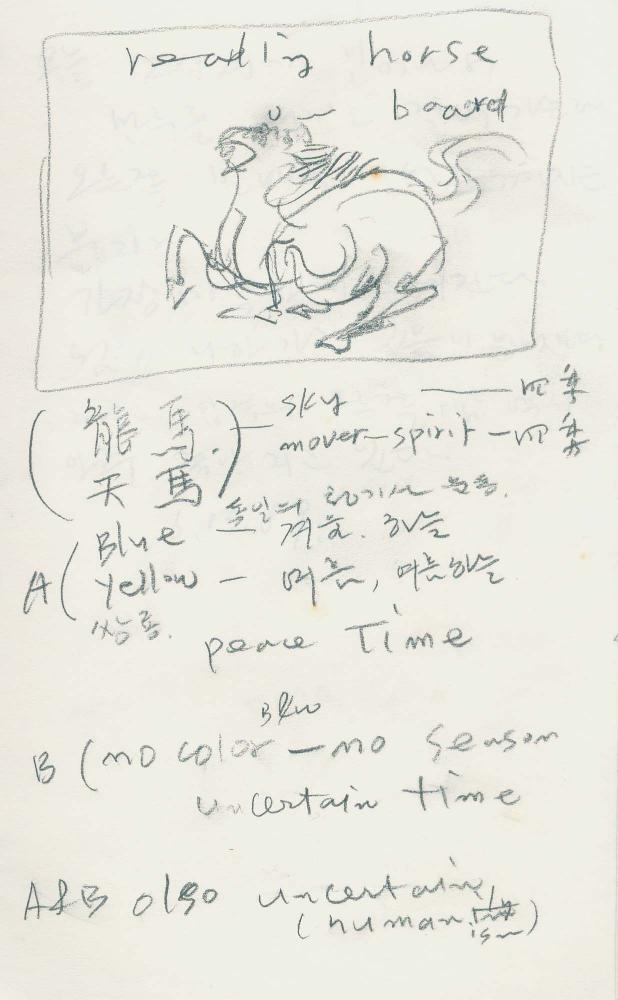 reading horse
board
龍馬.
天馬
sky — 四季
mover-spirit — 四季
Blue — 겨울. 하늘
A ( yellow — 여름, 여름하늘
쌍룡.
peace Time
B&W
B ( no color — no season
uncertain time
A&B also uncertain
(human ism)